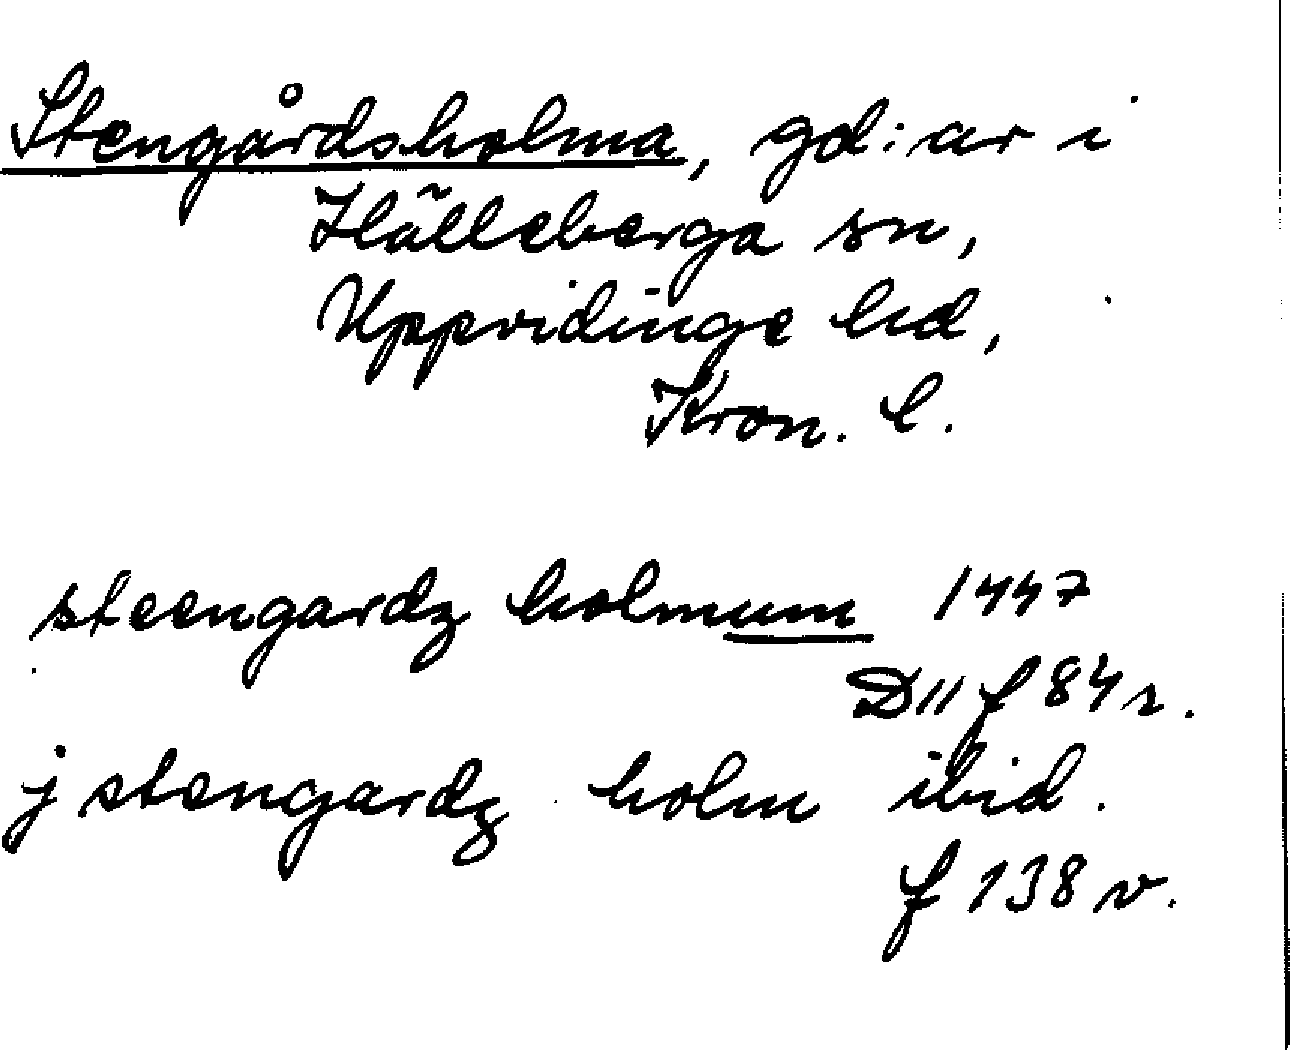 Stengårdsholma, gd:ar i
Hälleberga sn,
Uppvidinge hd,
Kron. l.
steengardz holmum 1447
D11 f 84 r.
j stengardz holm ibid.
f 138 v.